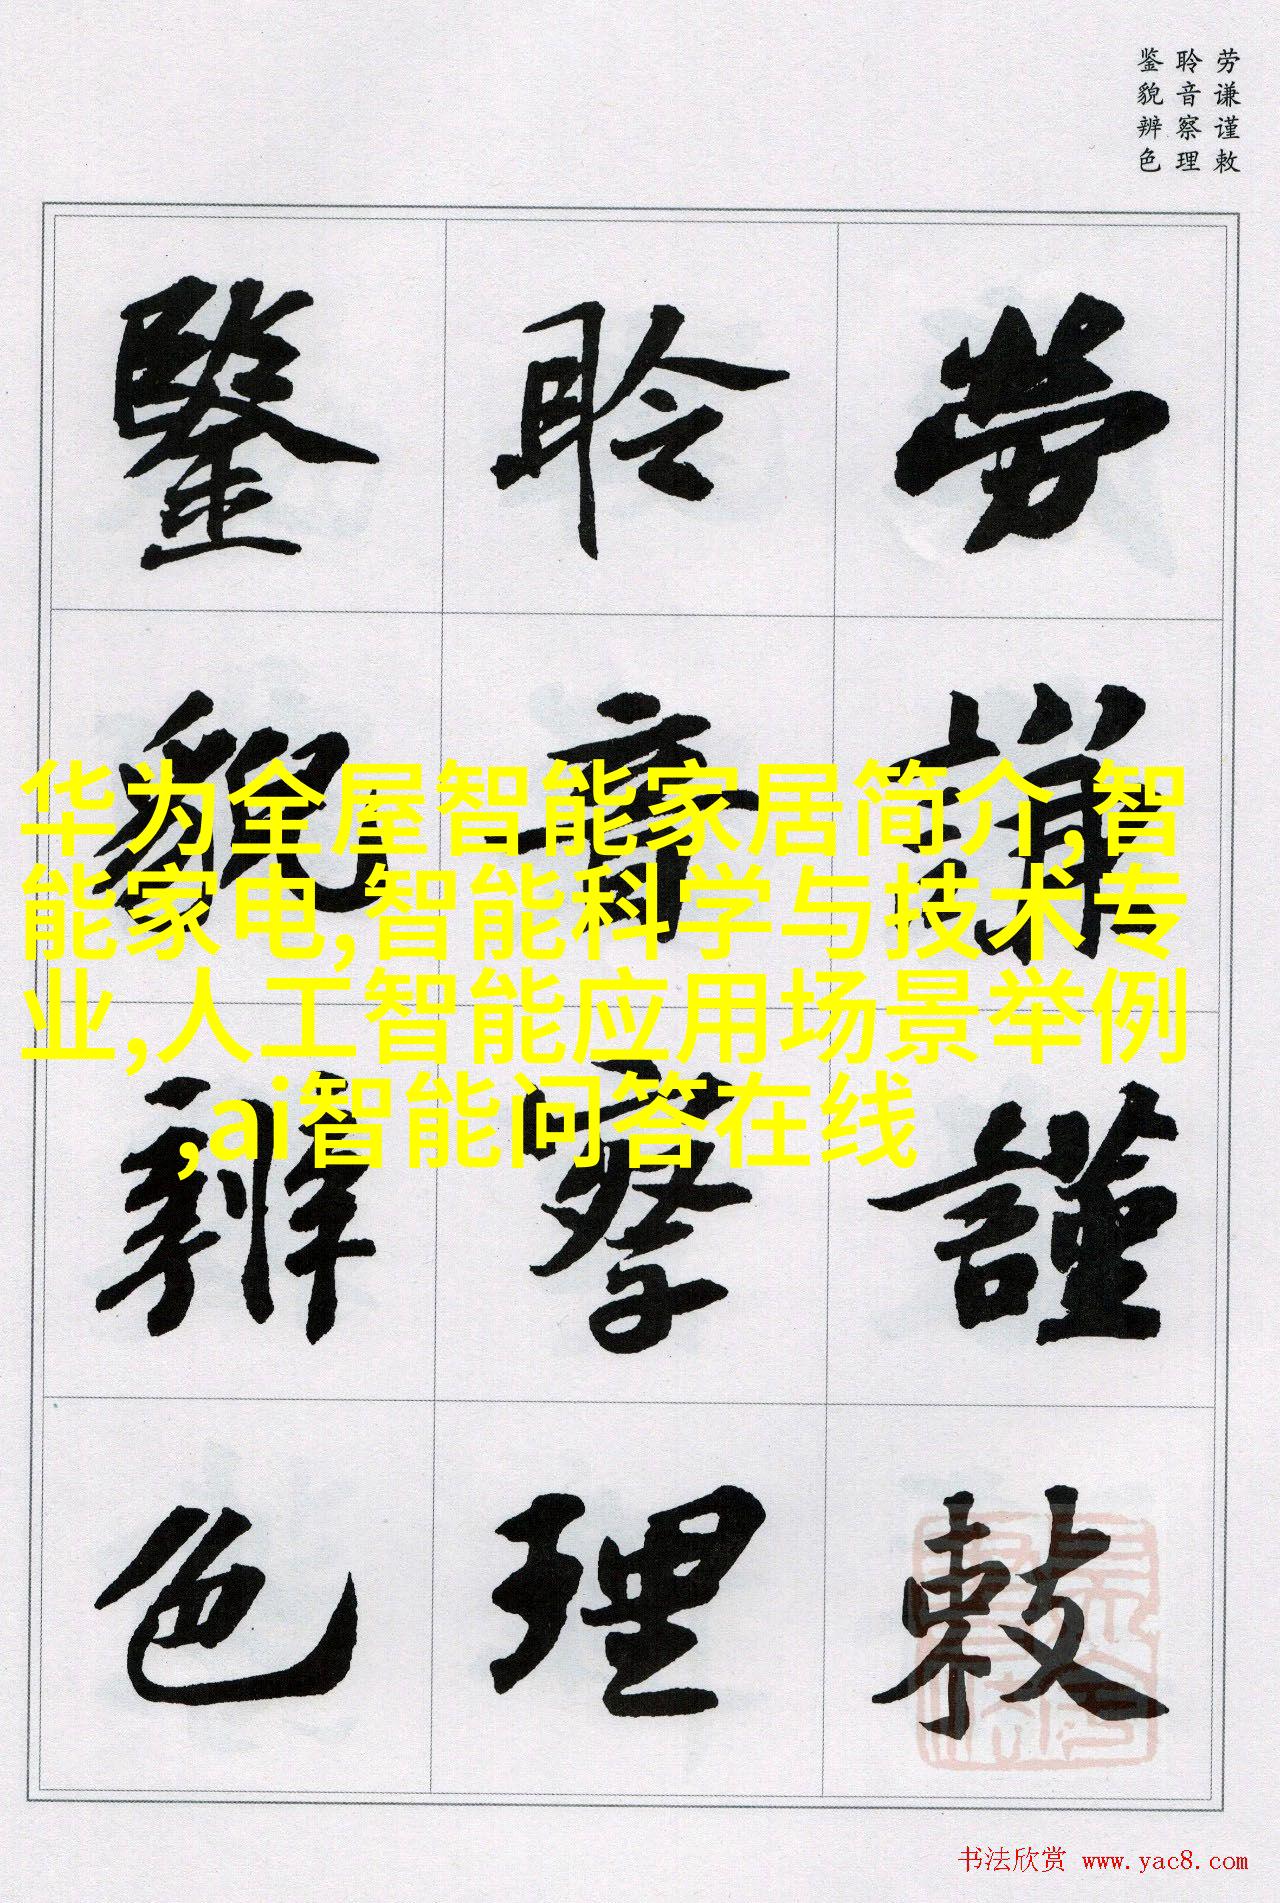 劳谦谨敕
聆音察理
鉴貌辨色
勞謙謹敕
聆音察理
鑒貌辨色
华为全屋智能家居简介,智
能家电,智能科学与技术专
业,人工智能应用场景举例
,ai智能问答在线
书法欣赏 www.yac8.com